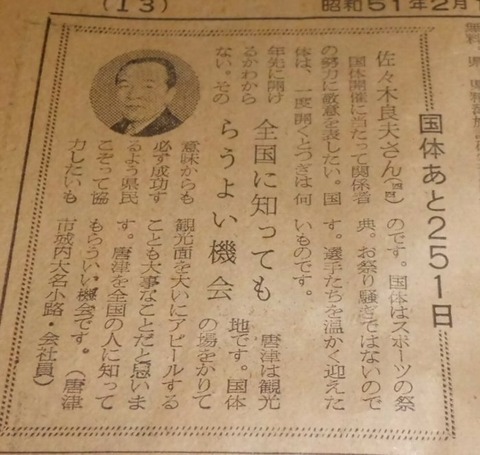 (13)
昭和51年2月1
国体あと251日
全国に知っても
らうよい機会
佐々木良夫さん
国体開催に当たって関係者
の努力に敬意を表したい。国
体は、一度開くとつぎは何
年先に開け
るかわから
ない。その
意味からも
必ず成功す
るよう県民
こぞって協
力したいも
のです。国体はスポーツの祭
典。お祭り騒ぎではないので
す。選手たちを温かく迎えた
いものです。
唐津は観光
地です。国体
の場をかりて
観光面を大いにアピールする
ことも大事なことだと思いま
す。唐津を全国の人に知って
もらういい機会です。(唐津
市城内大名小路・会社員)